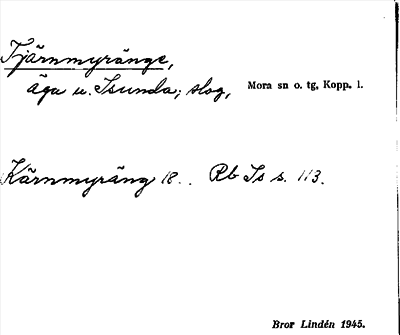 Tjärnmyränge,
äga u. Isunda; slog, Mora sn o. tg, Kopp. l.
Kärnmyräng 18.. Rb Is s. 113.
Bror Lindén 1945.